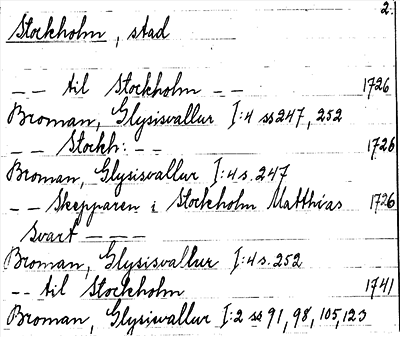 2.
Stockholm, stad
– – til Stockholm – – 1726
Broman, Glysisvallur I:4 ss 247, 252
– – Stockh: – – 1726
Broman, Glysisvallur I:4 s. 247
– – Skepparen i Stockholm Matthias 1726
Svart – – –
Broman, Glysisvallur I:4 s. 252
– – til Stockholm 1741
Broman, Glysisvallur I:2 ss 91, 98, 105, 123